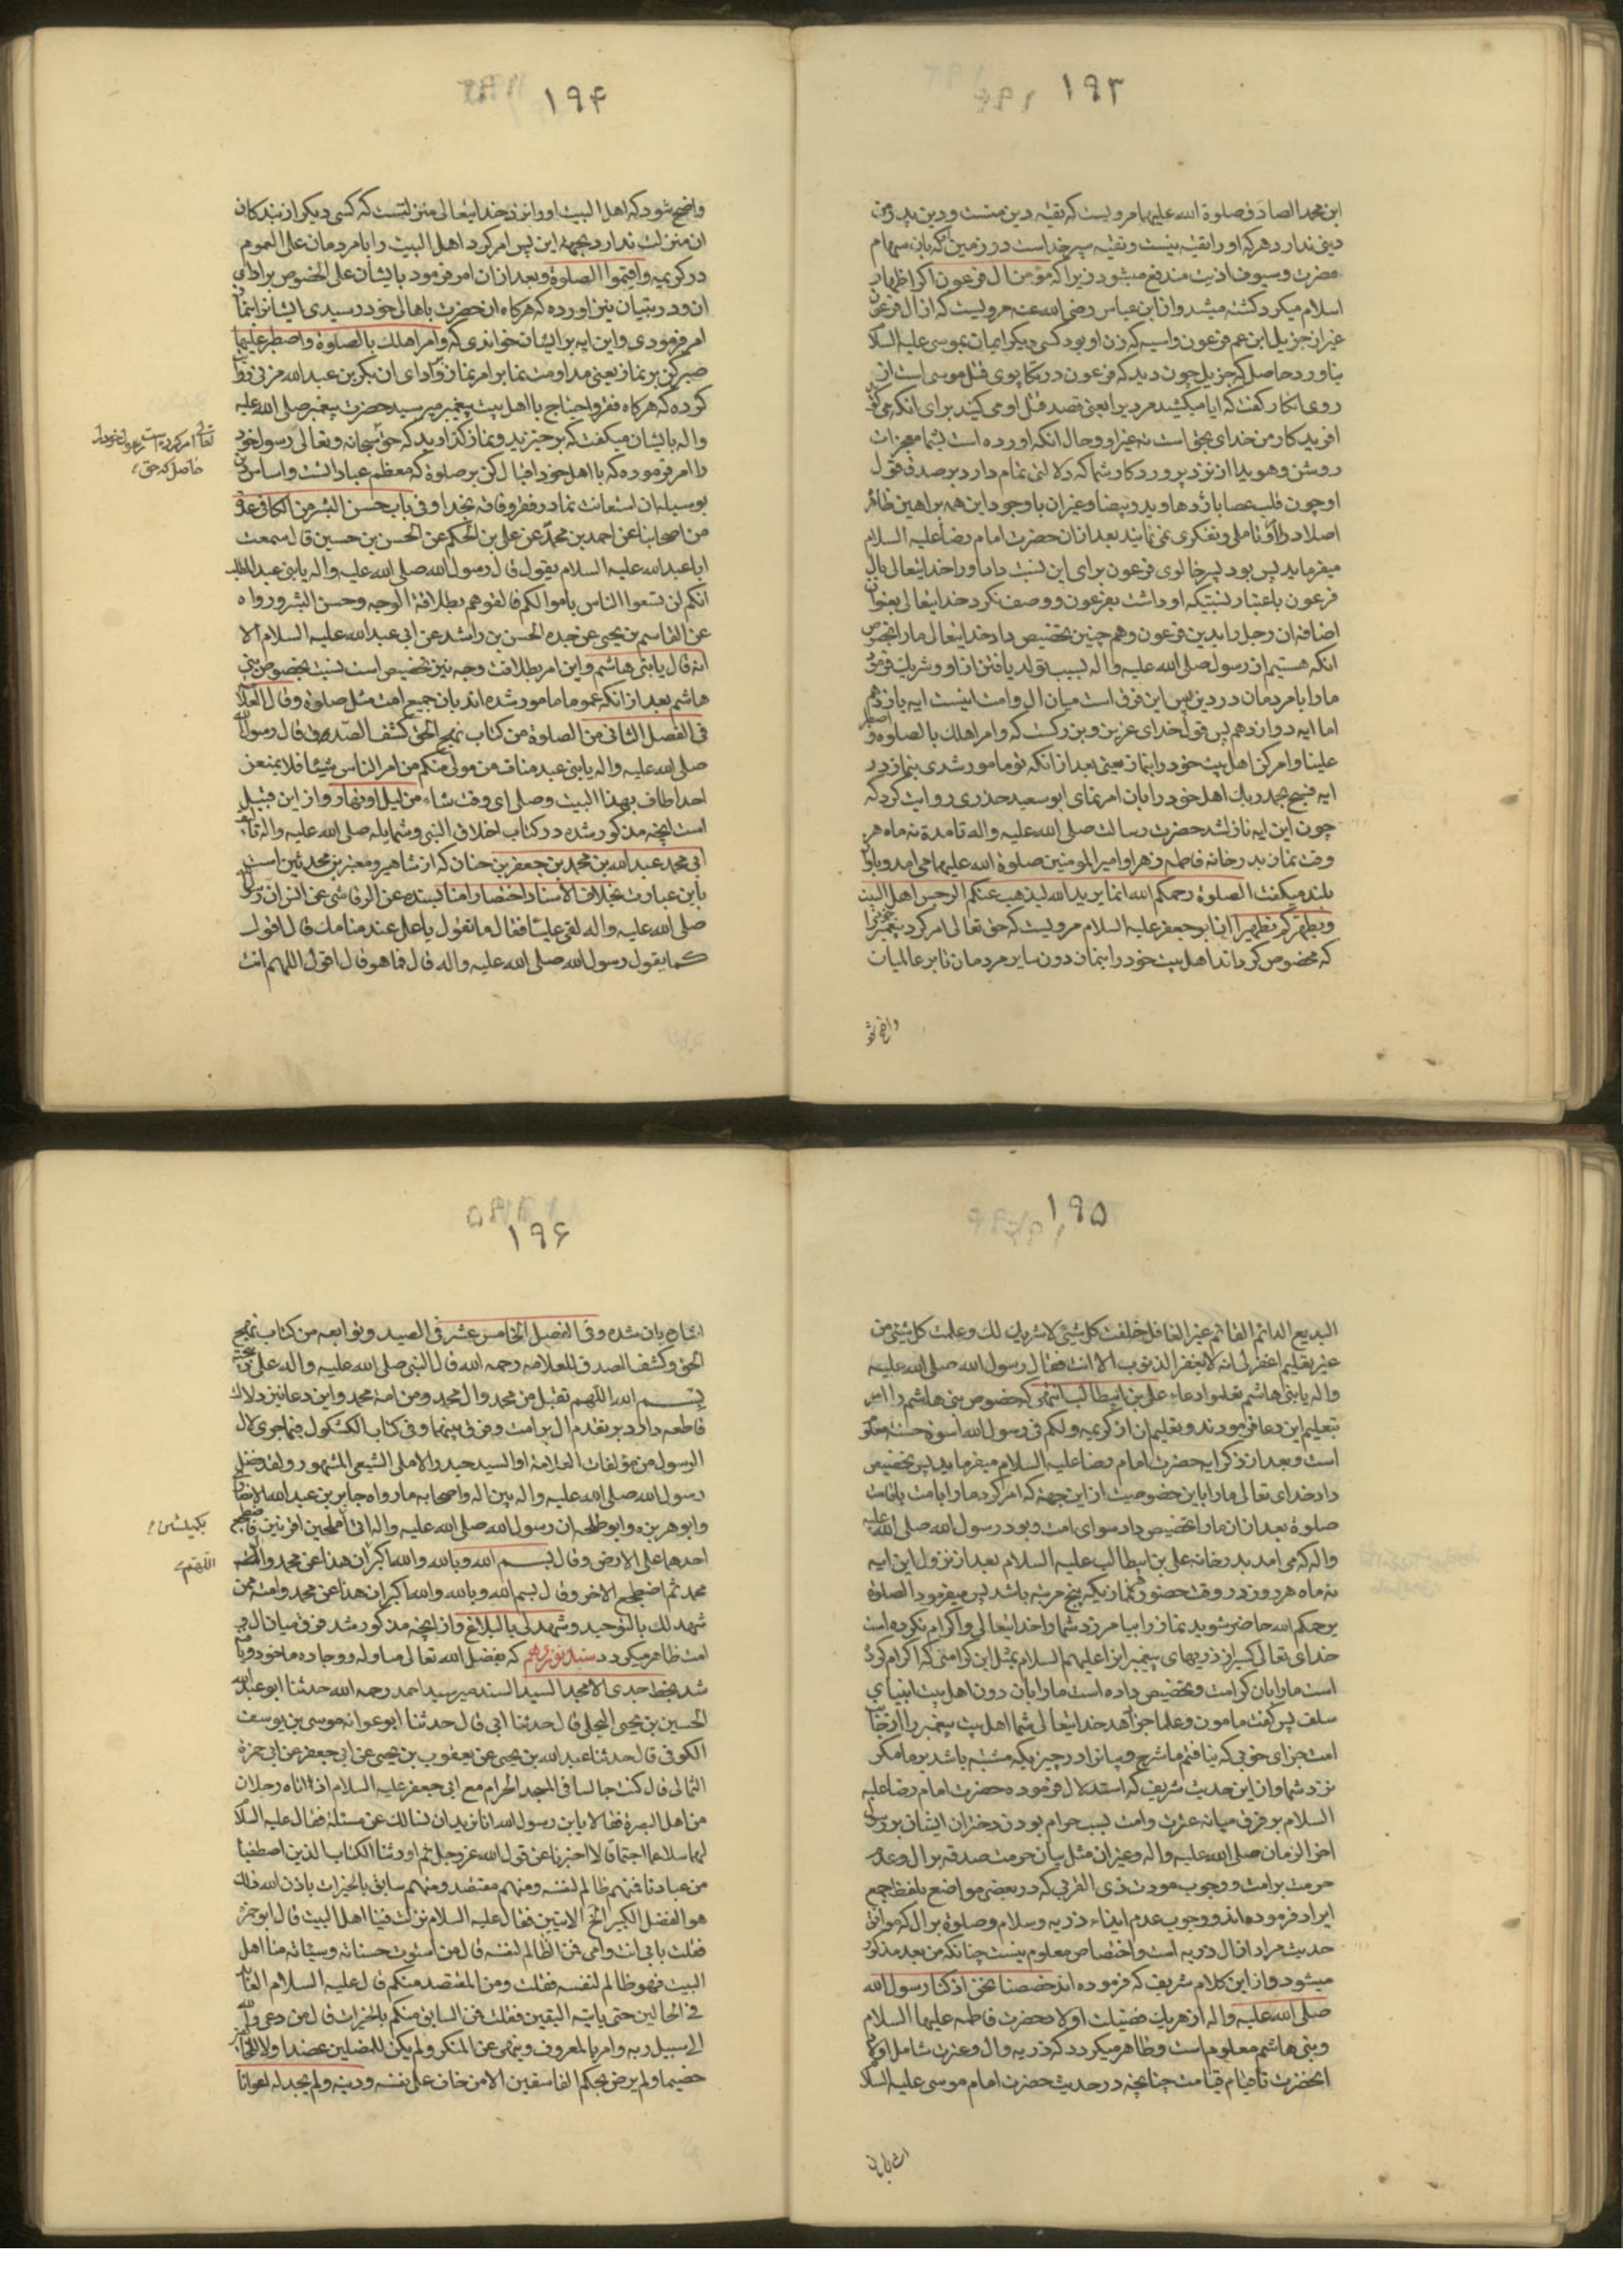 ۱۹۳
ابن محمد الصادق صلوة الله علیهما مرویست که تقیه دین منست و دین پدر من
دینی ندارد هرکه او را تقیه نیست و تقیه سپر خداست در زمین که بان سهام
مضرت و سیوف اذیت مندفع میشود زیرا که مؤمن ال فرعون اکر اظهار
اسلام میکرد کشته میشد و از ابن عباس رضی الله عنه مرویست که از ال فرعون
غیر از حزبیل ابن عم فرعون و اسیه که زن او بود کسی دیکر ایمان بموسی علیه السلام
نیاورد حاصل که حزبیل چون دید که فرعون در تکاپوی قتل موسی است از
روی انکار کفت که ایا میکشید مردیرا یعنی قصد قتل او می کنید برای انکه می کوید
افریدکار من خدای بحق است نه غیر او و حال انکه اورده است بشما معجزات
روشن و هویدا از نزد پروردکار شما که دلالتی تمام دارد بر صدق قول
او چون قلب عصا باژدها و ید و بیضا و غیر ان با وجود این همه براهین ظاهر
اصلا در ان تاملی و تفکری نمی نمایند بعد از ان حضرت امام رضا علیه السلام
میفرماید پس بود پسر خالوی فرعون برای این نسبت داد او را خدایتعالی بال
فرعون باعتبار نسبتیکه او داشت بفرعون و وصف نکرد خدایتعالی بعنوان
اضافه ان رجل را بدین فرعون و هم چنین تخصیص داد خدایتعالی ما را بخصوص
انکه هستیم از رسول صلی الله علیه و اله بسبب تولد یافتن از او و شریک فرمود
ما را با مردمان در دین پس این فرق است میان ال و امت اینست ایه یازدهم
اما ایه دوازدهم پس قول خدای عزیز و بزرکست که وامر اهلك بالصلوة و اصطبر
علیها و امر کن اهل بیت خود را بنماز یعنی بعد از انکه تو مامور شدی بنماز در
ایه فسبح بحمد ربك اهل خود را بان امر نمای ابو سعید خدری روایت کرد که
چون این ایه نازل شد حضرت رسالت صلی الله علیه و اله تا مدة نه ماه هر
وقت نماز بدر خانه فاطمه زهرا و امیر المومنین صلوة الله علیهما می امد و باواز
بلند میکفت الصلوة رحمکم الله انما یرید الله لیذهب عنکم الرجس اهل البیت
و یطهرکم تطهیرا از ابو جعفر علیه السلام مرویست که حق تعالی امر کرد پیغمبر خود را
که مخصوص کرداند اهل بیت خود را بنماز دون سایر مردمان تا بر عالمیان
واضح شو
۱۹۴
واضح شود که اهل البیت او را نزد خدایتعالی منزلتیست که کسی دیکر از بندکان
ان منزلت ندارد بجهة این پس امر کرد اهل البیت را با مردمان علی العموم
در کریمه واقیموا الصلوة و بعد از ان امر فرمود بایشان علی الخصوص برادای
ان و در تبیان نیز اورده که هرکاه ان حضرت باهالی خود رسیدی ایشانرا بنماز
امر فرمودی و این ایه بر ایشان خواندی که وامر اهلك بالصلوة واصطبر علیها
صبر کن بر نماز یعنی مداومت نما بر امر نماز و ادای ان بکر بن عبد الله مزنی روایت
کرده که هرکاه فقر و احتیاج با اهل بیت پیغمبر میرسید حضرت پیغمبر صلی الله علیه
و اله بایشان میکفت که برخیزید و نماز کذارید که حق سبحانه و تعالی رسول خود
را امر فرموده که با اهل خود اقبال کن بر صلوة که معظم عباداتست و اساس دین
بوسیله ان استعانت نما در فقر و فاقه بخدا و فی باب حسن البشر من الکافی عدة
من اصحابنا عن احمد بن محمد عن علی بن الحکم عن الحسن بن حسین قال سمعت
ابا عبد الله علیه السلام یقول قال رسول الله صلی الله علیه و اله یا بنی عبد المطلب
انکم لن تسعوا الناس باموالکم فالقوهم بطلاقة الوجه وحسن البشر و رواه
عن القاسم بن یحیی عن جده الحسن بن راشد عن ابی عبد الله علیه السلام الا
انه قال یا بنی هاشم و این امر بطلاقت وجه نیز تخصیص است نسبت بخصوص بنی
هاشم بعد از انکه عموما مامور شده اند بان جمیع امت مثل صلوة و قال العلامه
فی الفصل الثانی من الصلوة من کتاب نهج الحق کشف الصدق قال رسول الله
صلی الله علیه و اله یا بنی عبد مناف من مولی منکم من امر الناس شیئا فلا یمنعن
احدا طاف بهذا البیت وصلی ای وقت شاء من لیل او نهار و از این قبیل
است انچه مذکور شده در کتاب اخلاق النبی و شمایله صلی الله علیه و اله
ابی محمد عبد الله بن محمد بن جعفر بن حنان که از مشاهیر و معتبرین محدثین است
باین عبارت بخلاف الاسناد اختصارا منا بسنده عن الرقاشی عن انس ان رسول الله
صلی الله علیه و اله لقی علیا فقال ما تقول یا علی عند منامك قال اقول
کما یقول رسول الله صلی الله علیه و اله قال فما هو قال اقول اللهم انت
تعالی امر کرده است رسول خود را
حاصل که حق
۱۹۵
البدیع الدائم القائم غیر الغافل خلقت کل شیئ لا شریك لك وعلمت کل شیئ من
غیر تعلیم اغفر لی انه لا یغفر الذنوب الا انت فقال رسول الله صلی الله علیه
و اله یا بنی هاشم تعلموا دعاء علی بن ابیطالب انتهی که خصوص بنی هاشم را امر
بتعلیم این دعا فرمودند و بتعلیم ان از کریمه ولکم فی رسول الله اسوة حسنة معلوم
است و بعد از ذکر ایه حضرت امام رضا علیه السلام میفرماید پس تخصیص
داد خدای تعالی ما را باین خصوصیت از این جهت که امر کرد ما را با امت باقامت
صلوة بعد از ان ما را تخصیص داد سوای امت و بود رسول الله صلی الله علیه
و اله که می امد بدر خانه علی بن ابیطالب علیه السلام بعد از نزول این ایه
نه ماه هر روز در وقت حضور نمازیکه پنج مرتبه باشد پس میفرمود الصلوة
یرحمکم الله حاضر شوید نماز را بیامرزد شما را خدایتعالی و اکرام نکرده است
خدای تعالی کسی از ذریهای پیغمبرانرا علیهم السلام بمثل این کرامتی که اکرام کرد
است ما را بان کرامت و تخصیص داده است ما را بان دون اهل بیت انبیای
سلف پس کفت مامون و علما جزا دهد خدایتعالی شما اهل بیت پیغمبر را از جانب
امت جزای خوبی که نیافتم ما شرح و بیانرا در چیزیکه مشتبه باشد بر ما مکر
نزد شما و از این حدیث شریف که استدلال فرموده حضرت امام رضا علیه
السلام بر فرق میانه عترت و امت بسبب حرام بودن دختران ایشان بر رسول
اخر الزمان صلی الله علیه و اله و غیر ان مثل بیان حرمت صدقه بر ال و عدم
حرمت بر امت و وجوب مودت ذی القربی که در بعضی مواضع بلفظ جمع
ایراد فرموده اند و وجوب عدم ایذاء ذریه و سلام و صلوة بر ال که موافق
حدیث مراد از ال ذریه است و اختصاص معلوم نیست چنانکه من بعد مذکور
میشود و از این کلام شریف که فرموده اند خصصنا نحن اذ کنا رسول الله
صلی الله علیه و اله از هر یك فضیلت اولاد حضرت فاطمه علیها السلام
و بنی هاشم معلوم است و ظاهر میکردد که ذریه و ال و عترت شامل اولاد
انحضرت تا قیام قیامت چنانچه در حدیث حضرت امام موسی علیه السلام
۱۹۶
بان شده و فی الفصل الخامس عشر فی الصید و توابعه من کتاب نهج
الحق و کشف الصدق للعلامه رحمه الله قال النبی صلی الله علیه و اله علی
بسم الله اللهم تقبل من محمد وال محمد ومن امة محمد و این دعا نیز دلالت
قاطعه دارد بر تقدم ال بر امت و فرق بینهما و فی کتاب الکشکول فیما جری لال
الرسول من مؤلفات العلامة او السید حیدر الاملی الشیعی المشهور ولقد فضل
رسول الله صلی الله علیه و اله بین اله واصحابه ما رواه جابر بن عبد الله الانصاری
وابو هریره وابو طلحه ان رسول الله صلی الله علیه و اله اتی املحین اقرنین فاضجع
احدهما علی الارض وقال بسم الله وبالله والله اکبر ان هذا عن محمد وال
محمد ثم اضجع الاخر وقال بسم الله وبالله والله اکبر ان هذا عن محمد وامة من
شهد لك بالتوحید وشهد لی بالبلاغ و از انچه مذکور شد فرق میان ال و
امت ظاهر میکردد سند نوزدهم که بفضل الله تعالی مناوله و وجاده ماخوذ و
شد بخط جدی الامجد السید السند میر سید احمد رحمه الله حدثنا ابو عبد الله
الحسین بن یحیی البجلی قال حدثنا ابی قال حدثنا ابو عوانه موسی بن یوسف
الکوفی قال حدثنا عبد الله بن یحیی عن یعقوب بن یحیی عن ابی جعفر عن ابی حمزة
الثمالی قال کنت جالسا فی المسجد الحرام مع ابی جعفر علیه السلام اذ اتاه رجلان
من اهل البصرة فقالا یا بن رسول الله انا نرید ان نسالك عن مسئلة فقال علیه السلام
لهما سلا عما احببتما قالا اخبرنا عن قول الله عز وجل ثم اورثنا الکتاب الذین اصطفینا
من عبادنا فمنهم ظالم لنفسه ومنهم مقتصد ومنهم سابق بالخیرات باذن الله ذلك
هو الفضل الکبیر الی اخر الایتین فقال علیه السلام نزلت فینا اهل البیت قال ابو حمزه
فقلت بابی انت وامی فمن الظالم لنفسه قال من استوت حسناته وسیئاته منا اهل
البیت فهو ظالم لنفسه فقلت ومن المقتصد منکم قال علیه السلام العابد
فی الحالین حتی یاتیه الیقین فقلت فمن السابق منکم بالخیرات قال من دعی والله
الی سبیل ربه وامر بالمعروف وینهی عن المنکر ولم یکن للمضلین عضدا ولا للخائنین
خصیما ولم یرض بحکم الفاسقین الا من خاف علی نفسه ودینه ولم یجد له اعوانا
بکبشین
اللهم